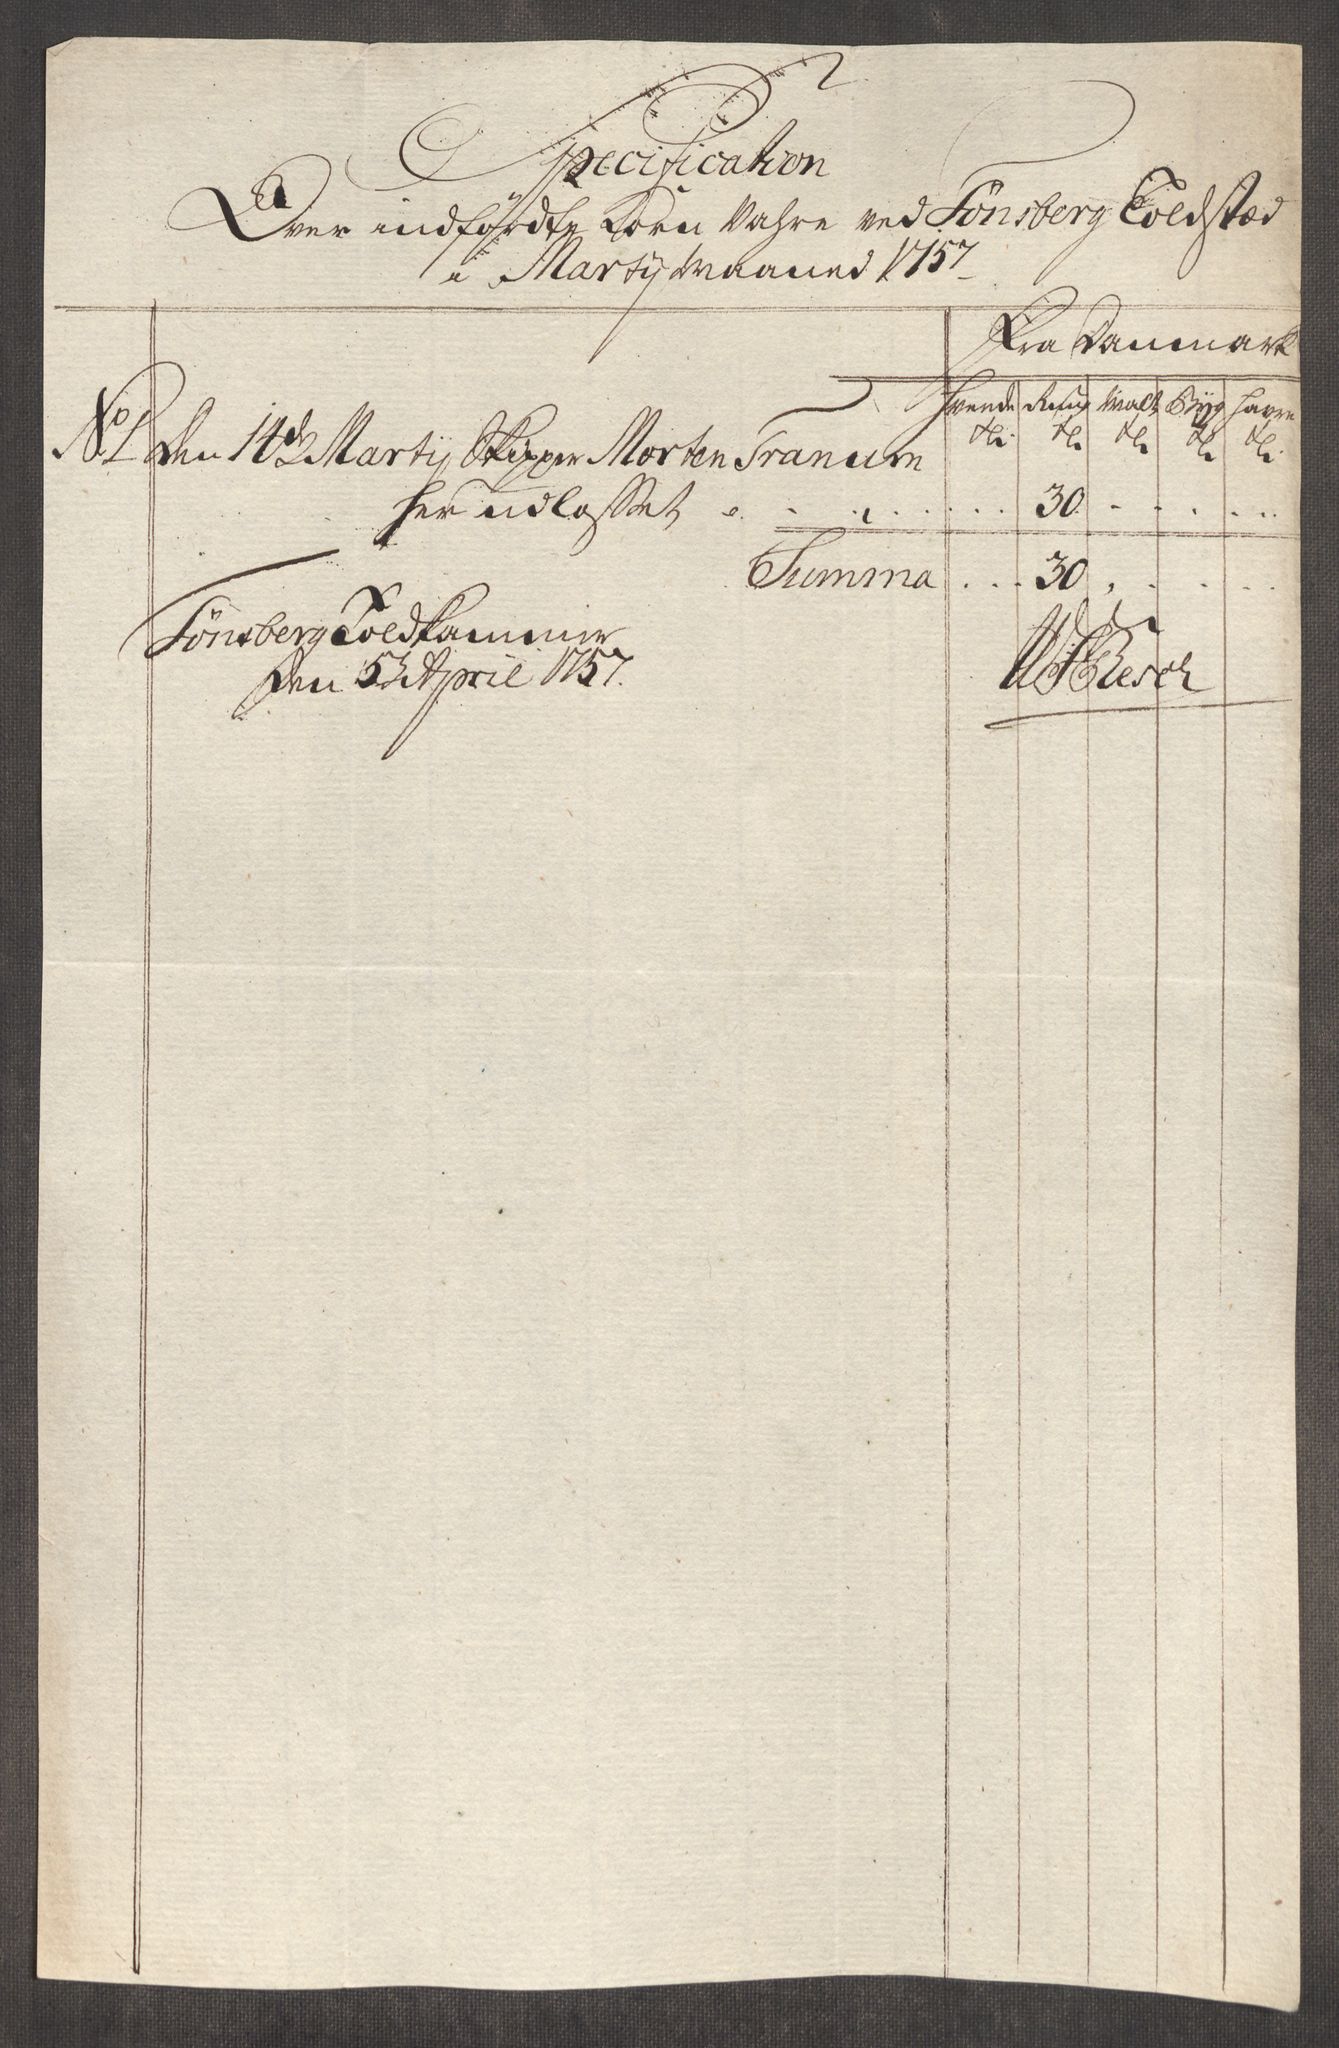 Specification
Over indførdte Korn Vahre ved Tönsberg Toldstæd
i Martÿ Maaned 1757
Fra Danmark
Hvede Rug Malt Byg Havre
No 1 Den 14de Martÿ Skipper Morten Tranum
her udlosset . . . . . . . 30 . . . . . .
Summa . . . 30 . . . . .
Tönsberg Toldkammer
Den 5 April 1757.